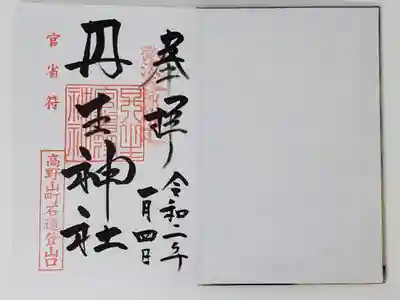 奉拝
令和二年
一月四日
丹生神社
官省符
高野山町石道登山口